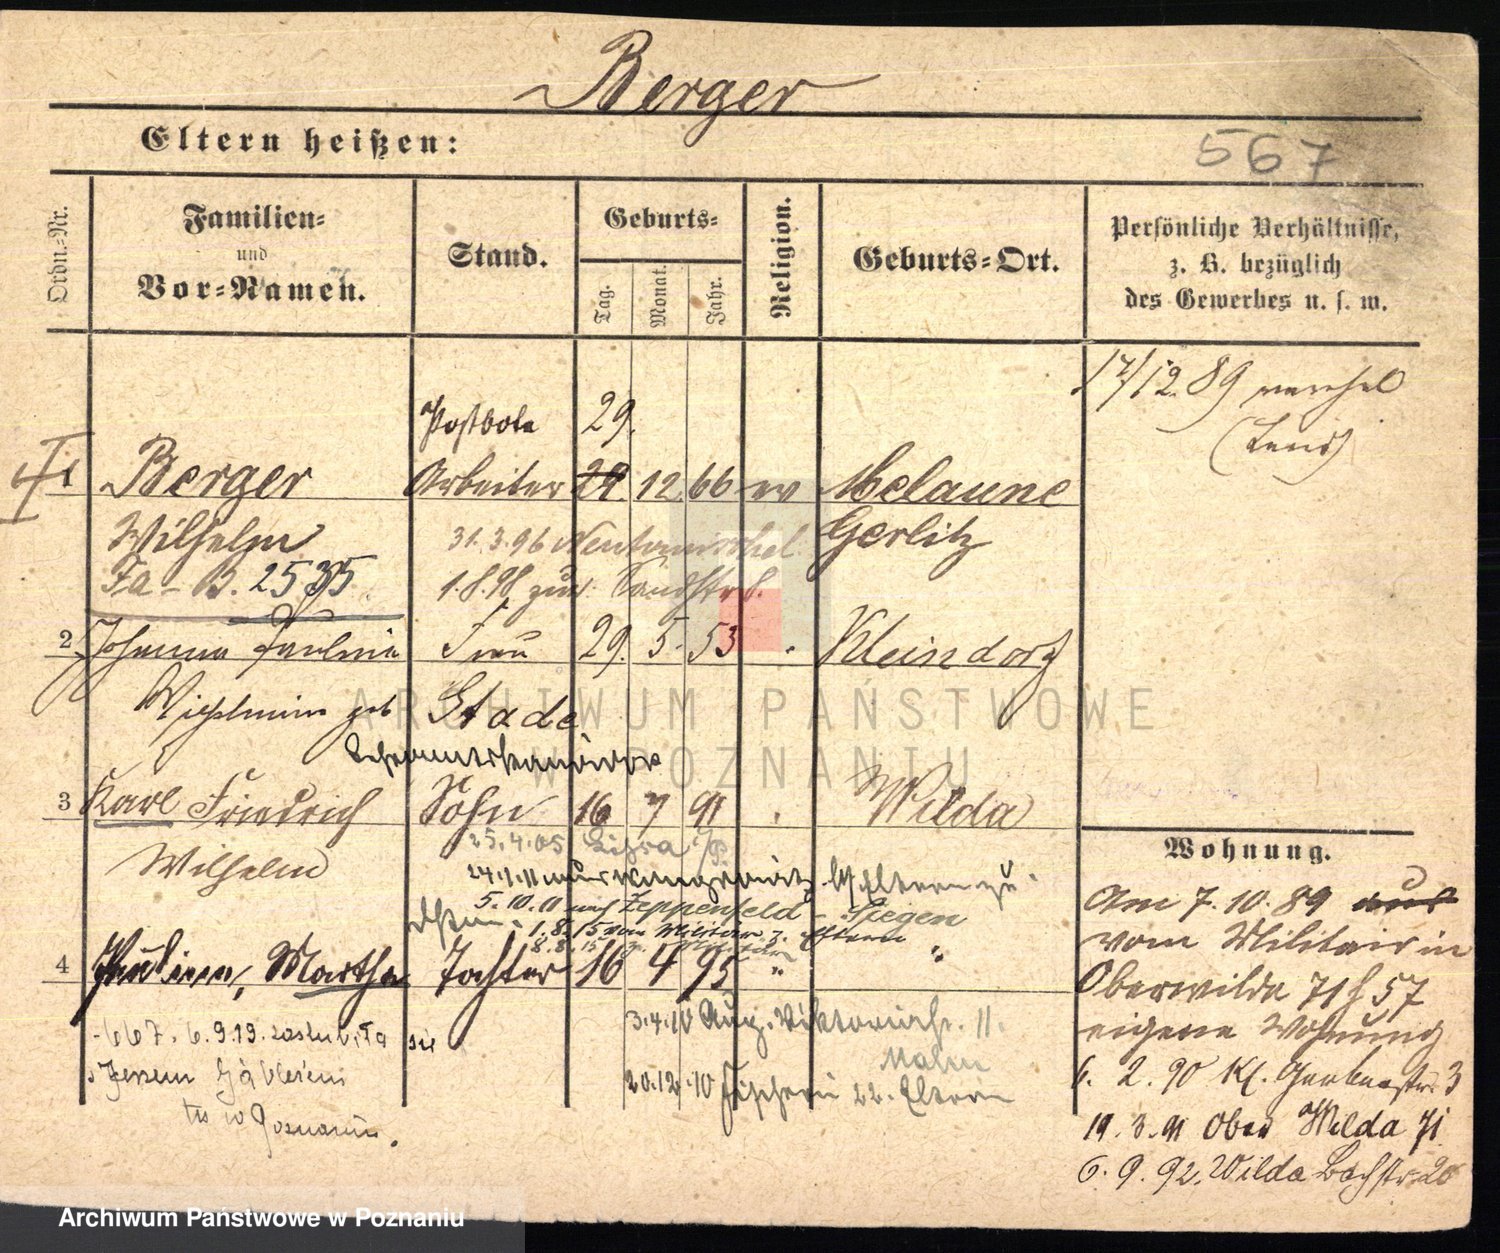 Berger
Eltern heißen:
567
Ordn.=Nr.
Familien=
und
Vor=Namen.
Stand.
Geburts=
Tag.
Monat.
Jahr.
Religion.
Geburts=Ort.
Persönliche Verhältnisse,
z. B. bezüglich
des Gewerbes u. s. w.
17/12 89
Postbote 29.
1 Berger Arbeiter 29 12 66 ev Melaune
Wilhelm 31.3.96 Gerlitz
Fa - B. 2535 1.8.98 zur Sandstr 8.
2 Johanna Pauline Frau 29. 5. 53 " Kleindorf
Wilhelmine geb Stade
3 Karl Friedrich Sohn 16 7 91 " Wilda
Wilhelm 25.4.05
24.1.11 Eltern zu
5.10.11 nach Zeppenfeld - Siegen
1.8.15 vom Militär z. Eltern
8.8.15 z. Militär
4 Pauline, Martha Tochter 16 4 95 " "
667. 6.9.19. zaślubiła się
tu w Poznaniu.
3.4.10 Aug. Viktoriastr. 11.
20.12.10 Fischerei 22. Eltern
Wohnung.
Am 7.10.89 aus
vom Militair in
Oberwilda 71 f 57
eigene Wohnung
6. 2. 90 Kl. Gerberstr. 3
19. 3. 91 Ober Wilda 71
6. 9. 92. Wilda Bachstr. 20
ARCHIWUM PAŃSTWOWE
W POZNANIU
Archiwum Państwowe w Poznaniu